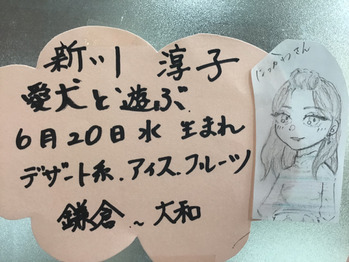 新川 淳子
愛犬と遊ぶ
6月20日 水 生まれ
デザート系、アイス、フルーツ
鎌倉~大和